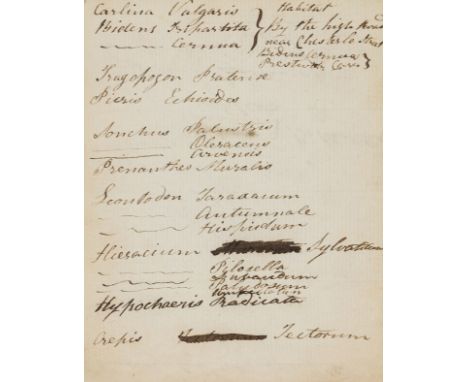 Carlina Vulgaris Habitat
Bidens Tripartita By the high road
Cernua near Chester le
Bidens Cernua
Tragopogon Pratense
Picris Echioides
Sonchus Palustris
Oleraceus
Arvensis
Prenanthes Muralis
Leontodon Taraxacum
Autumnale
Hispidum
Hieracium Sylvaticum
Pilosella
Hypochaeris Radicata
Crepis Tectorum